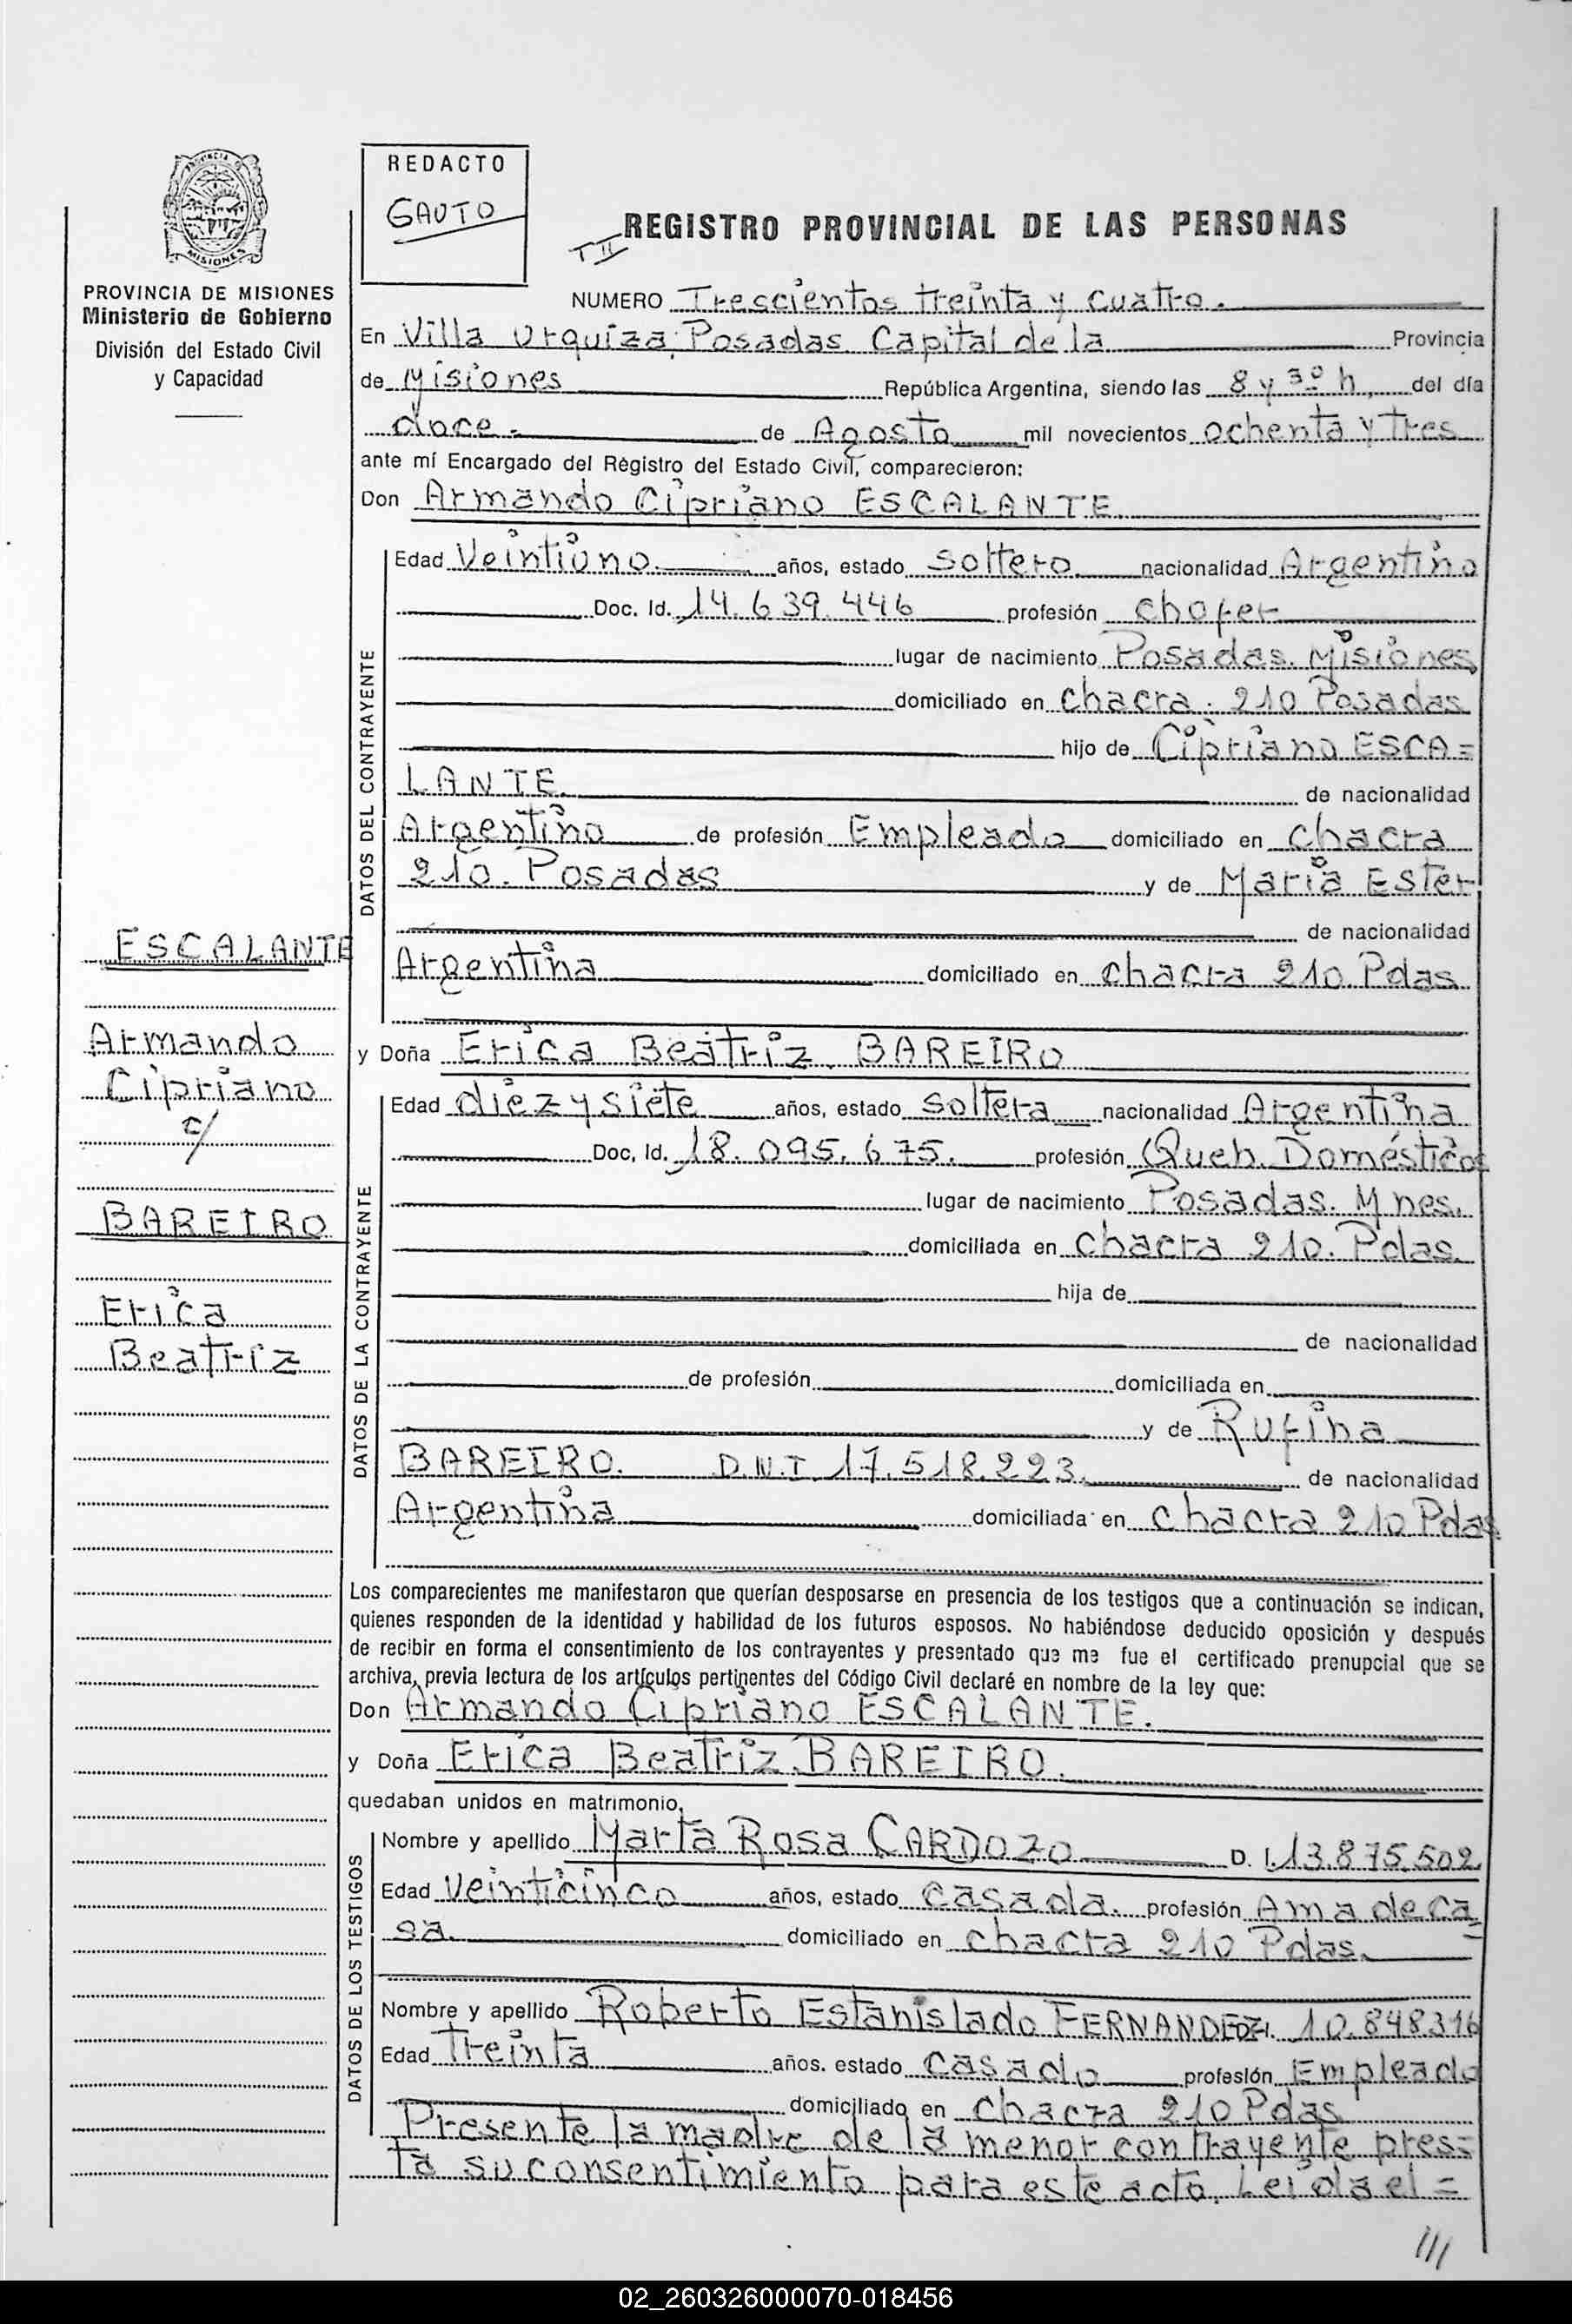 REDACTO
GAUTO
T II
REGISTRO PROVINCIAL DE LAS PERSONAS
MISIONES
PROVINCIA DE MISIONES
Ministerio de Gobierno
División del Estado Civil
y Capacidad
ESCALANTE
Armando
Cipriano
c/
BAREIRO
Erica
Beatriz
NUMERO Trescientos treinta y cuatro.
En Villa Urquiza. Posadas Capital de la Provincia
de Misiones República Argentina, siendo las 8 y 30 h. del día
doce.- de Agosto mil novecientos ochenta y tres
ante mí Encargado del Registro del Estado Civil, comparecieron:
Don Armando Cipriano ESCALANTE
DATOS DEL CONTRAYENTE
Edad Veintiuno. años, estado soltero. nacionalidad Argentino
Doc. Id. 14.639.446 profesión chofer
lugar de nacimiento Posadas. Misiones
domiciliado en chacra. 210 Posadas
hijo de Cipriano ESCA=
LANTE. de nacionalidad
Argentino de profesión Empleado domiciliado en chacra
210. Posadas y de Maria Ester
de nacionalidad
Argentina domiciliado en chacra 210. Pdas.
y Doña Erica Beatriz BAREIRO
DATOS DE LA CONTRAYENTE
Edad diezysiete años, estado soltera nacionalidad Argentina
Doc. Id. 18.095.675. profesión Queh. Domésticos
lugar de nacimiento Posadas. Mnes.
domiciliada en chacra 210. Pdas.
hija de
de nacionalidad
de profesión domiciliada en
y de Rufina
BAREIRO. D.N.I. 17.518.223. de nacionalidad
Argentina domiciliada en chacra 210 Pdas
Los comparecientes me manifestaron que querían desposarse en presencia de los testigos que a continuación se indican,
quienes responden de la identidad y habilidad de los futuros esposos. No habiéndose deducido oposición y después
de recibir en forma el consentimiento de los contrayentes y presentado que me fue el certificado prenupcial que se
archiva, previa lectura de los artículos pertinentes del Código Civil declaré en nombre de la ley que:
Don Armando Cipriano ESCALANTE.
y Doña Erica Beatriz BAREIRO.
quedaban unidos en matrimonio.
DATOS DE LOS TESTIGOS
Nombre y apellido Marta Rosa CARDOZO D. I. 13.875.502.
Edad veinticinco años, estado casada. profesión Ama de ca=
sa. domiciliado en chacra 210 Pdas.
Nombre y apellido Roberto Estanislado FERNANDEZ D.I. 10.848316
Edad Treinta años. estado casado profesión Empleado
domiciliado en chacra 210 Pdas
Presente la madre de la menor contrayente pres=
ta su consentimiento para este acto. Leida el =
///
02_260326000070-018456